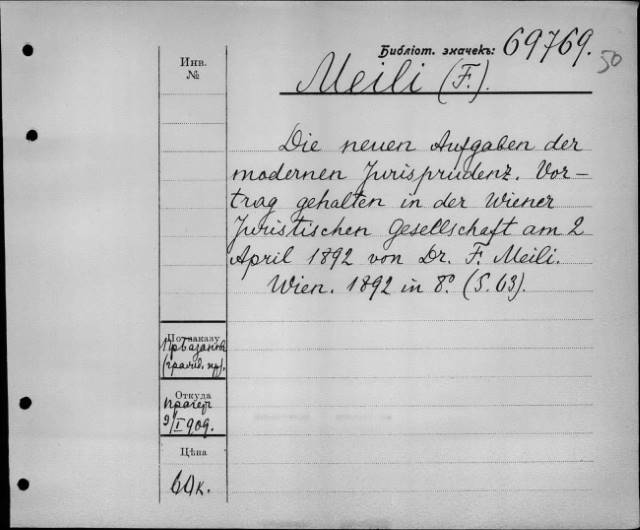 Библіот. значекъ: 69769.
50
Инв.
№
Meili (F.).
Die neuen Aufgaben der
modernen Jurisprudenz. Vor-
trag gehalten in der Wiener
Juristischen Gesellschaft am 2
April 1892 von Dr. F. Meili.
Wien. 1892 in 8º. (S. 63).
По заказу
Откуда
9/I 909.
Цѣна
60 к.